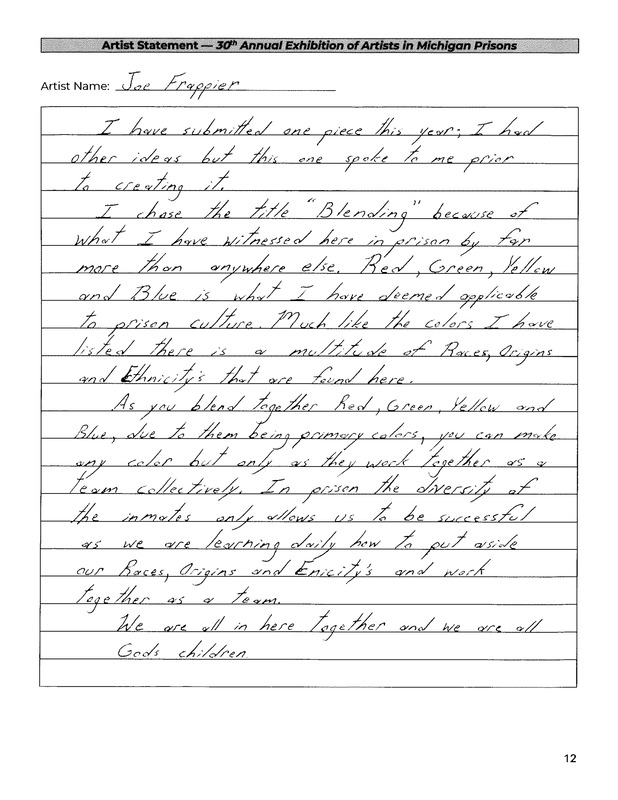 Artist Statement — 30th Annual Exhibition of Artists in Michigan Prisons
Artist Name: Joe Frappier
I have submitted one piece this year; I had
other ideas but this one spoke to me prior
to creating it.
I chose the title "Blending" because of
what I have witnessed here in prison by far
more than anywhere else. Red, Green, Yellow
and Blue is what I have deemed applicable
to prison culture. Much like the colors I have
listed there is a multitude of Races, Origins
and Ethnicity's that are found here.
As you blend together Red, Green, Yellow and
Blue, due to them being primary colors, you can make
any color but only as they work together as a
team collectively. In prison the diversity of
the inmates only allows us to be successful
as we are learning daily how to put aside
our Races, Origins and Enicity's and work
together as a team.
We are all in here together and we are all
Gods children
12